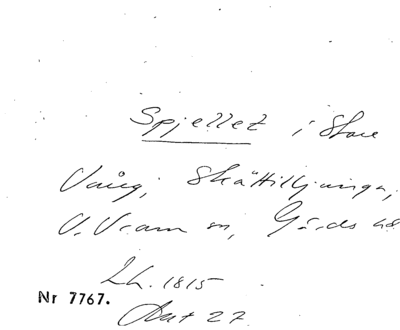 Spjellet i Stora
Vång, Skättilljunga,
V. Vram sn, Gärds hd
Lh. 1815
Nr 7767.
Akt 27